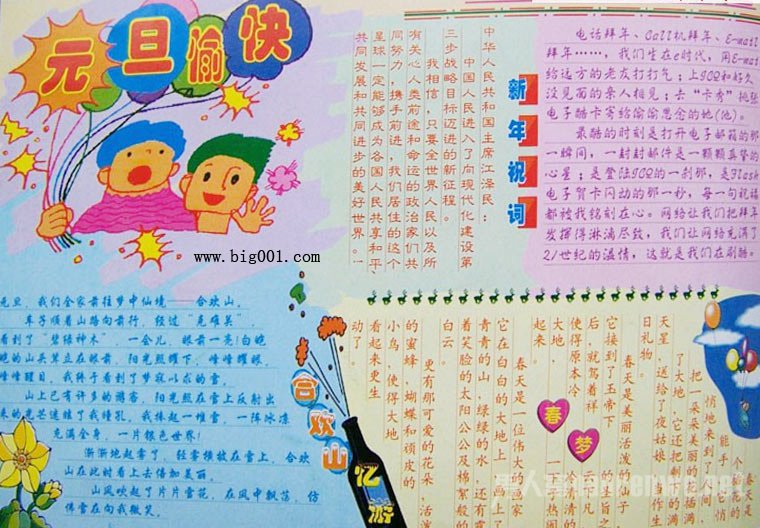 元旦愉快
www.big001.com
新年祝词
中华人民共和国主席江泽民:
中国人民进入了向现代化建设第
三步战略目标迈进的新征程。
我相信,只要全世界人民以及所
有关心人类前途和命运的政治家们共
同努力,携手前进,我们居住的这个
星球一定能够成为各国人民共享和平、
共同发展和共同进步的美好世界。
电话拜年、Call机拜年、E-mail
拜年……,我们生在e时代,用E-mail
给远方的老友打打气;上ICQ和好久
没见面的亲人相见;去“卡秀”挑些
电子酷卡寄给偷偷思念的她(他)。
最酷的时刻是打开电子邮箱的那
一瞬间,一封封邮件是一颗颗真挚的
心星;是登陆ICQ的一刹那,是Flash
电子贺卡闪动的那一秒,每一句祝福
都被我铭刻在心。网络让我们把拜年
发挥得淋漓尽致,我们让网络充满了
21世纪的温情,这就是我们在刷酷。
元旦,我们全家前往梦中仙境——合欢山。
车子顺着山路向前行,经过“克难关”
看到了“碧绿神木”一会儿,眼前一亮!白皑
皑的山头耸立在眼前,阳光照耀下,峰峰耀眼,
峰峰醒目,我终于看到了梦寐以求的雪。
山上已有许多的游客,阳光照在雪上反射出
来的光芒迷住了我瞳孔,我捧起一堆雪,一阵冰凉
充满全身,一片银色世界!
渐渐地起雾了,轻雾横披在雪上,合欢
山在此时看上去倍加美丽。
山风吹起了片片雪花,在风中飘荡,仿
佛雪在向我微笑。
合欢山
忆游
春梦
春天是
一个
能手,它悄
悄地来到了人间,
把一朵朵美丽的花插满
了大地,它还把剩下的满
天星,送给了夜姑娘作生
日礼物。
春天是美丽活泼的仙子,
它接到了玉帝下的圣旨之
后,就驾着祥云下凡
使得原本冷
大地,热闹
起来。
春天是一位伟大
它在白白的大地上,画上了
青青的山,绿绿的水,还有露
着笑脸的太阳公公及棉絮般的
白云。
更有那可爱的花朵,活泼
的蜜蜂,蝴蝶和顽皮的
小鸟,使得大地
看起来更生
动了。